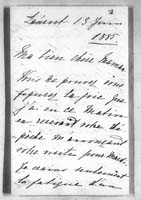 Laeken 13 Juin
1885
Ma bien chère Maman
Vous ne pouvez vous
figurez la joie que
j'ai eu ce matin
en recevant votre dé-
pêche m'annonçant
votre visite pour Mardi.
Je crains seulement
la fatigue d'un